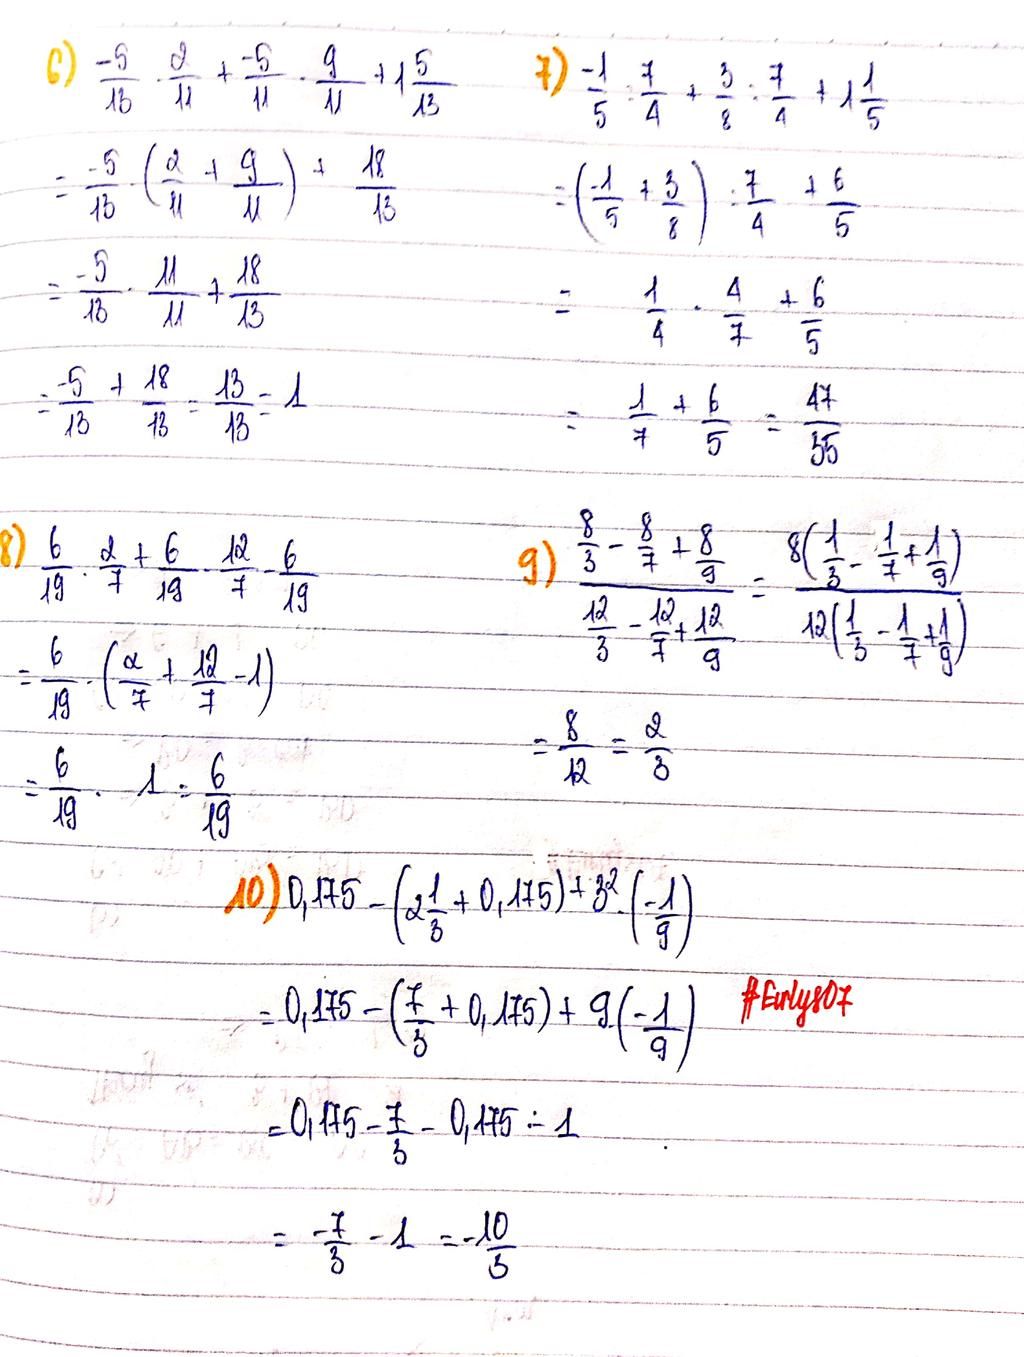 6) -5/13 . 2/11 + -5/11 . 9/11 + 1 5/13
= -5/13 . (2/11 + 9/11) + 18/13
= -5/13 . 11/11 + 18/13
= -5/13 + 18/13 = 13/13 = 1
7) -1/5 : 7/4 + 3/8 : 7/4 + 1 1/5
= (-1/5 + 3/8) : 7/4 + 6/5
= 1/4 . 4/7 + 6/5
= 1/7 + 6/5 = 47/35
8) 6/19 . 2/7 + 6/19 . 12/7 - 6/19
= 6/19 . (2/7 + 12/7 - 1)
= 6/19 . 1 = 6/19
9) (8/3 - 8/7 + 8/9)/(12/3 - 12/7 + 12/9) = 8(1/3 - 1/7 + 1/9)/12(1/3 - 1/7 + 1/9)
= 8/12 = 2/3
10) 0,175 - (2 1/3 + 0,175) + 3² . (-1/9)
= 0,175 - (7/3 + 0,175) + 9 (-1/9)
#Eirlys07
= 0,175 - 7/3 - 0,175 - 1
= -7/3 - 1 = -10/3